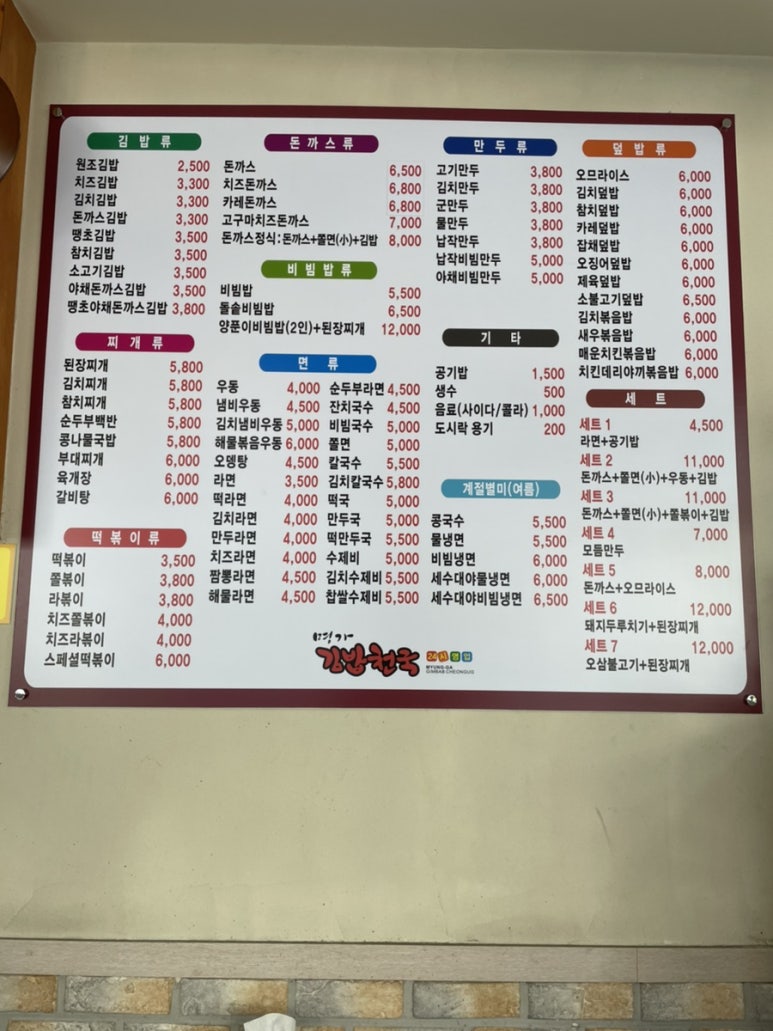 김밥류
원조김밥 2,500
치즈김밥 3,300
김치김밥 3,300
돈까스김밥 3,300
땡초김밥 3,500
참치김밥 3,500
소고기김밥 3,500
야채돈까스김밥 3,500
땡초야채돈까스김밥 3,800
찌개류
된장찌개 5,800
김치찌개 5,800
참치찌개 5,800
순두부백반 5,800
콩나물국밥 5,800
부대찌개 6,000
육개장 6,000
갈비탕 6,000
떡볶이류
떡볶이 3,500
쫄볶이 3,800
라볶이 3,800
치즈쫄볶이 4,000
치즈라볶이 4,000
스페셜떡볶이 6,000
돈까스류
돈까스 6,500
치즈돈까스 6,800
카레돈까스 6,800
고구마치즈돈까스 7,000
돈까스정식:돈까스+쫄면(小)+김밥 8,000
비빔밥류
비빔밥 5,500
돌솥비빔밥 6,500
양푼이비빔밥(2인)+된장찌개 12,000
면류
우동 4,000
냄비우동 4,500
김치냄비우동 5,000
해물볶음우동 6,000
오뎅탕 4,500
라면 3,500
떡라면 4,000
김치라면 4,000
만두라면 4,000
치즈라면 4,000
짬뽕라면 4,500
해물라면 4,500
순두부라면 4,500
잔치국수 4,500
비빔국수 5,000
쫄면 5,000
칼국수 5,500
김치칼국수 5,800
떡국 5,000
만두국 5,000
떡만두국 5,500
수제비 5,000
김치수제비 5,500
찹쌀수제비 5,500
만두류
고기만두 3,800
김치만두 3,800
군만두 3,800
물만두 3,800
납작만두 3,800
납작비빔만두 5,000
야채비빔만두 5,000
기타
공기밥 1,500
생수 500
음료(사이다/콜라) 1,000
도시락 용기 200
계절별미(여름)
콩국수 5,500
물냉면 5,500
비빔냉면 6,000
세수대야물냉면 6,000
세수대야비빔냉면 6,500
덮밥류
오므라이스 6,000
김치덮밥 6,000
참치덮밥 6,000
카레덮밥 6,000
잡채덮밥 6,000
오징어덮밥 6,000
제육덮밥 6,000
소불고기덮밥 6,500
김치볶음밥 6,000
새우볶음밥 6,000
매운치킨볶음밥 6,000
치킨데리야끼볶음밥 6,000
세트
세트 1 4,500
라면+공기밥
세트 2 11,000
돈까스+쫄면(小)+우동+김밥
세트 3 11,000
돈까스+쫄면(小)+쫄볶이+김밥
세트 4 7,000
모듬만두
세트 5 8,000
돈까스+오므라이스
세트 6 12,000
돼지두루치기+된장찌개
세트 7 12,000
오삼불고기+된장찌개
명가
김밥천국
24시영업
MYUNG-GA
GIMBAB CHEONGUG